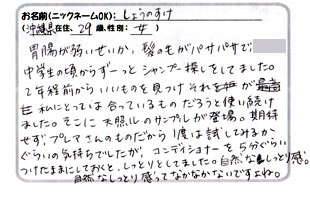 お名前(ニックネームOK): しょうのすけ
(沖縄県在住、29歳、性別: 女)
胃腸が弱いせいか、髪の毛がパサパサで
中学生の頃からずーっとシャンプー探しをしてました。
2年程前からいいものを見つけ それが最高
と私にとっては合っているものだろうと使い続け
ました。そこに天照ルのサンプルが登場。期待
せず、プレマさんのものだから1度は試してみるか
ぐらいの気持ちでしたが、コンディショナーを5分ぐらい
つけたままにしておくと、しっとりとしました。自然なしっとり感。
自然なしっとり感ってなかなかないですよね。